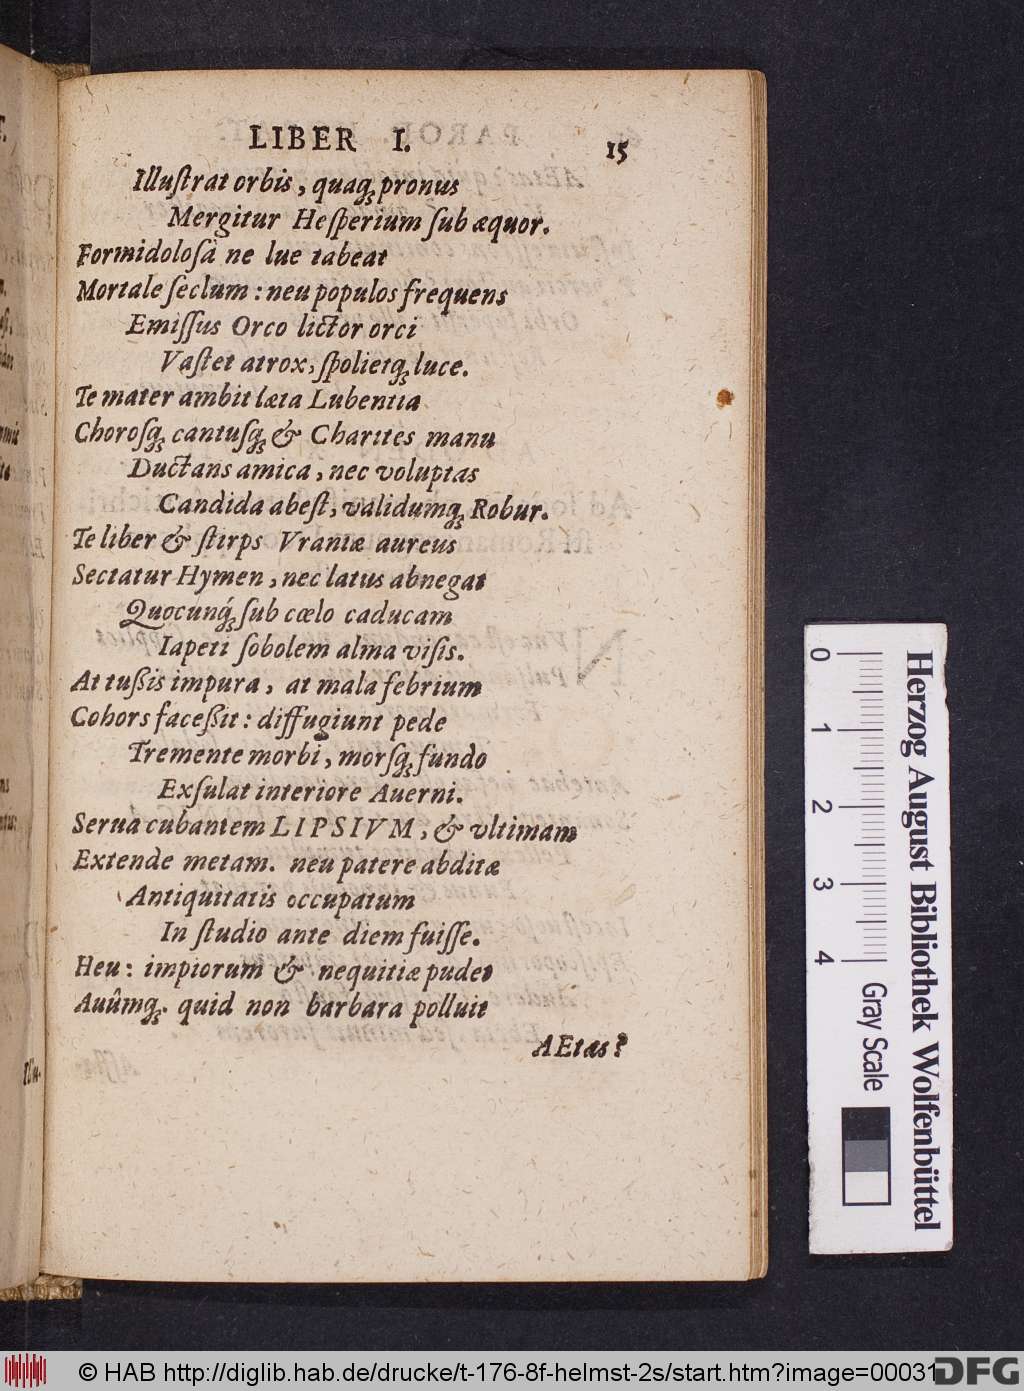 LIBER I. 15
Illuſtrat orbis, quaq; pronus
Mergitur Heſperium ſub æquor.
Formidoloſâ ne lue tabeat
Mortale ſeclum: neu populos frequens
Emiſſus Orco lictor orci
Vaſtet atrox, ſpolietq; luce.
Te mater ambit læta Lubentia
Choroſq; cantuſq; & Charites manu
Ductans amica, nec voluptas
Candida abeſt, validumq; Robur.
Te liber & ſtirps Vraniæ aureus
Sectatur Hymen, nec latus abnegat
Quocunq́; ſub cœlo caducam
Iapeti ſobolem alma viſis.
At tußis impura, at mala febrium
Cohors faceßit: diffugiunt pede
Tremente morbi, morſq; fundo
Exſulat interiore Auerni.
Serua cubantem LIPSIVM, & vltimam
Extende metam. neu patere abditæ
Antiquitatis occupatum
In ſtudio ante diem fuiſſe.
Heu: impiorum & nequitiæ pudet
Auûmq;. quid non barbara polluit
AEtas?
Herzog August Bibliothek Wolfenbüttel
0 1 2 3 4
Gray Scale
© HAB http://diglib.hab.de/drucke/t-176-8f-helmst-2s/start.htm?image=00031
DFG